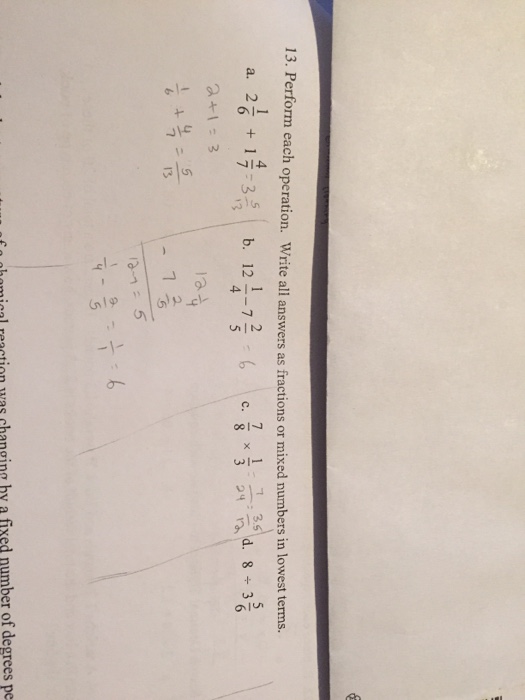 13. Perform each operation. Write all answers as fractions or mixed numbers in lowest terms.
a. 2 1/6 + 1 4/7 = 3 5/13
2+1 = 3
1/6 + 4/7 = 5/13
b. 12 1/4 - 7 2/5 = 6
12 1/4
- 7 2/5
12-7 = 5
1/4 - 2/5 = 1/1 = 6
c. 7/8 × 1/3 = 7/24 = 3.5/12
d. 8 ÷ 3 5/6
chemical reaction was changing by a fixed number of degrees pe